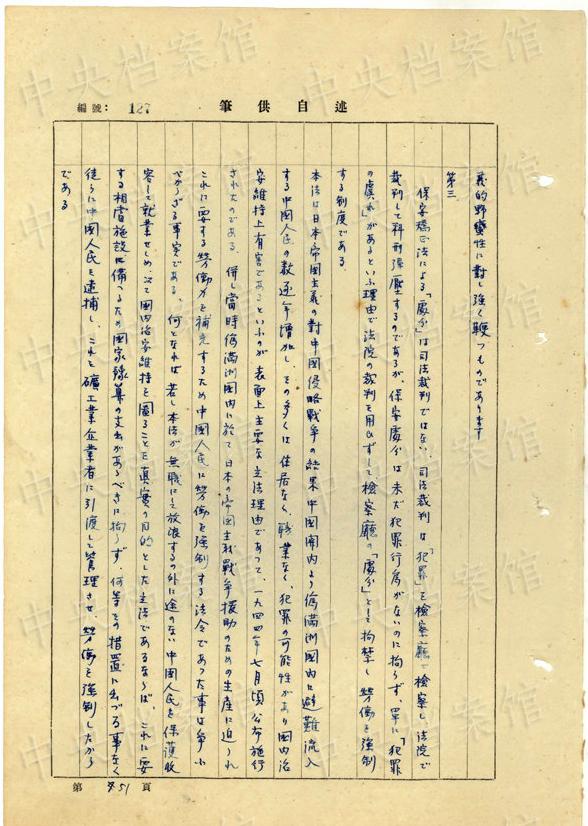 編號: 127
筆供自述
義的野蠻性に對し強く鞭つものであります
第三
保安矯正法による「處分」は司法裁判ではない。司法裁判は「犯罪」を檢察廳で檢察し法院で
裁判して科刑彈壓するのであるが、保安處分は未だ犯罪行為がないのに拘らず、單に「犯罪
の虞れ」があるといふ理由で法院の裁判を用ひずして檢察廳の「處分」として拘禁し勞働を強制
する制度である
本法は日本帝國主義の對中國侵略戰爭の結果中國關内より偽滿洲國内に避難流入
する中國人民の數逐年增加し、その多くは住居なく、職業なく、犯罪の可能性があり國内治
安維持上有害であるといふのが表面上主要な立法理由であつて、一九四四年七月頃公布施行
されたのである 併し當時偽滿洲國内に於て日本の帝國主義戰爭援助のための生產に迫られ
これに要する勞働力を補充するため中國人民に勞働を強制する法令であつた事は爭ふ
べからざる事実である、何となれば若し本法が無職にして放浪するの外に途のない中國人民を保護收
容して就業せしめ、以て國内治安維持を圖ることを真實の目的とした立法であるならば、これに要
する相當施設に備へるため國家豫算の支出があるべきに拘らず、何等その措置に出づる事なく
徒らに中國人民を逮捕し、これを礦工業企業者に引渡して管理させ、勞働を強制したから
である
第 頁
中央档案馆